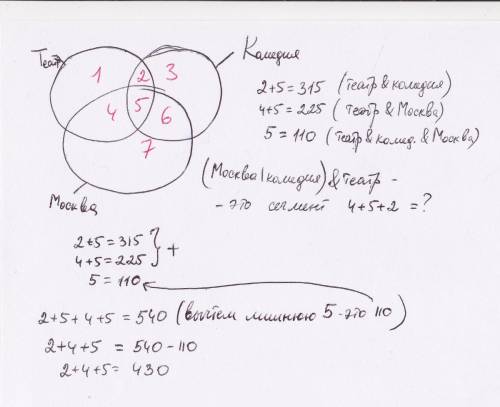 Театр
Комедия
1
2
3
4
5
6
7
Москва
2+5=315 (театр & комедия)
4+5=225 (театр & Москва)
5=110 (театр & комед. & Москва)
(Москва | комедия) & театр -
- это сегмент 4+5+2 = ?
2+5=315
4+5=225 } +
5=110
2+5+4+5=540 (вычтем лишнюю 5 - это 110)
2+4+5 = 540-110
2+4+5= 430